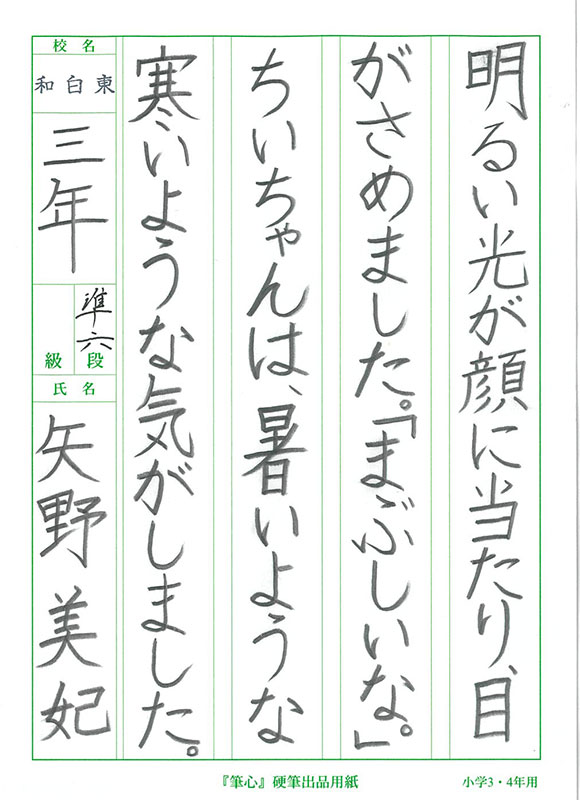 明るい光が顔に当たり、目
がさめました。「まぶしいな。」
ちいちゃんは、暑いような
寒いような気がしました。
校名
和白東
三年
準六
段
級
氏名
矢野美妃
『筆心』硬筆出品用紙
小学3・4年用